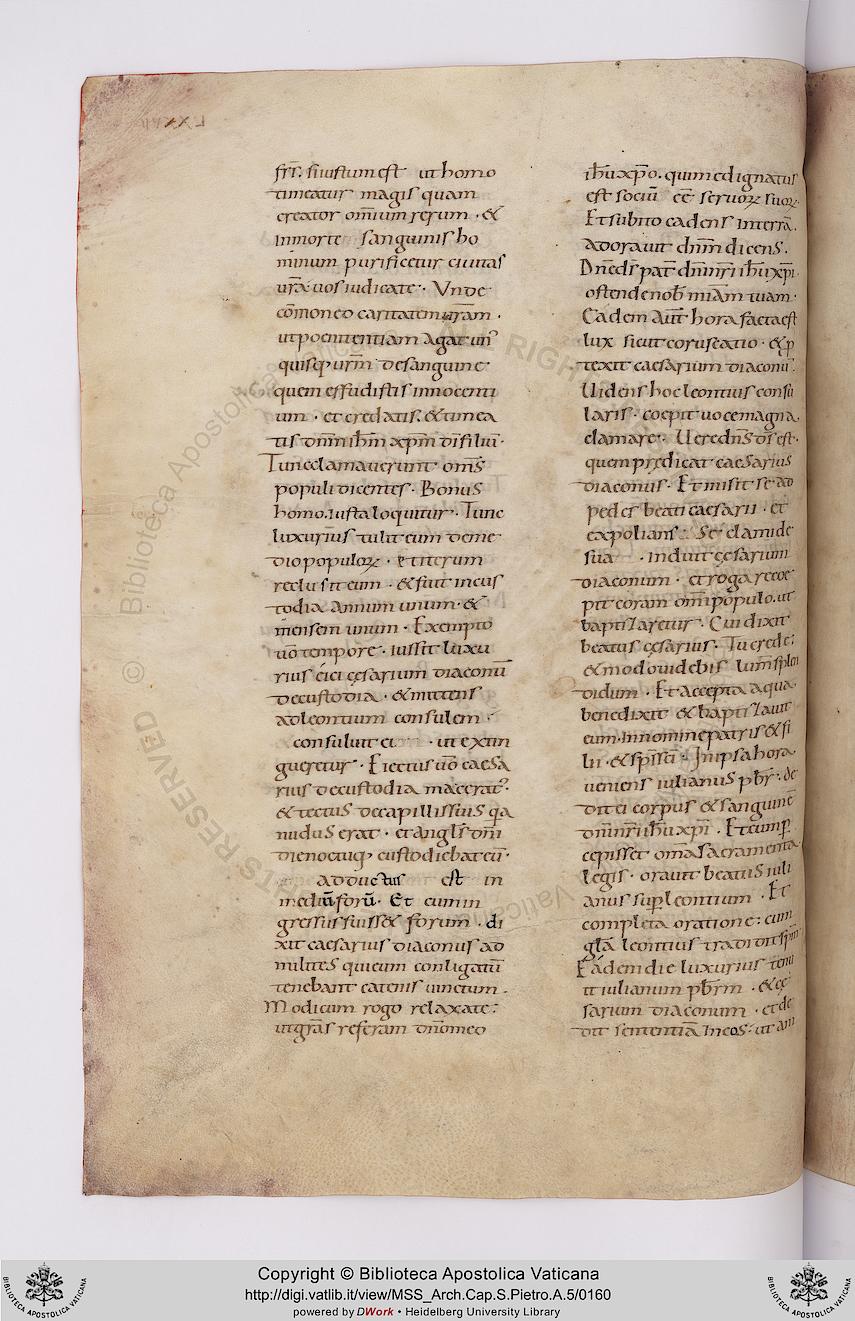 fr̄s. si iustum est ut homo
timeatur magis quam
creator om̄ium rerum · &
in morte sanguinis ho
minum purificetur ciuitas
ur̄a uos iudicate · Vnde
cōmoneo caritatem ur̄am ·
ut poenitentiam agat un'
quisq· ur̄m de sanguine
quem effudistis innocenti
um · et credatis · & timea
tis dn̄m ih̄m xp̄m dī filiū ·
Tunc clamauerunt om̄s
populi dicentes · Bonus
homo · iusta loquitur · Tunc
luxurius tulit eum de me
dio populoꝝ · et iterum
reclusit eum · & fuit in cus
todia annum unum · &
mensem unum · Exempto
uō tempore · iussit luxu
rius eici cęsarium diaconū
de custodia · & mittens
ad leontium consulem ·
consuluit ei · ut extin
gueretur · Eiectus uō caesa
rius de custodia macerat' ·
& tectus de capillis suis qa
nudus erat · et angl's dn̄i
die noctuq· custodiebat eū ·
adductus est in
mediū forū · Et cum in
gressus fuiss& forum · di
xit caesarius diaconus ad
milites qui eum conligatū
tenebant catenis uinctum ·
Modicum rogo relaxate :
ut gr̄as referam dn̄o meo
ih̄u xp̄o · qui me dignatus
est sociū eē seruoꝝ suoꝝ ·
Et subito cadens in terrā ·
adorauit dn̄m dicens ·
Dn̄e ds̄ pat̄ dn̄i nr̄i ih̄u xp̄i ·
ostende nob̄ mīam tuam ·
Eadem aut̄ hora facta est
lux sicut coruscatio · & p
texit caesarium diaconū ·
Uidens hoc leontius consu
laris · coepit uoce magna
clamare · Uere dn̄s ds̄ est ·
quem prędicat caesarius
diaconus · Et misit se ad
pedes beati caesarii · et
expolians se clamide
sua · induit cęsarium
diaconum · et rogare coe
pit coram omī populo · ut
baptizaretur · Cui dixit
beatus cęsarius · Tu crede :
& modo uidebis lum̄ splen
didum · Et accepta aqua
benedixit & baptizauit
eum · In nomine patris & fi
lii · & sp̄s sc̄i · In ipsa hora
ueniens iulianus pb̄r · de
dit ei corpus & sanguinē
dn̄i nr̄i ih̄u xp̄i · Et cum p
cepisset om̄a sacramenta
legis · orauit beatus iuli
anus sup leontium · Et
completa oratione : cum
gl̄a leontius tradidit sp̄m
Eadem die luxurius tenu
it iulianum pb̄rm · & cę
sarium diaconum · et de
dit sententiā in eos · ut am
Copyright © Biblioteca Apostolica Vaticana
http://digi.vatlib.it/view/MSS_Arch.Cap.S.Pietro.A.5/0160
powered by DWork • Heidelberg University Library